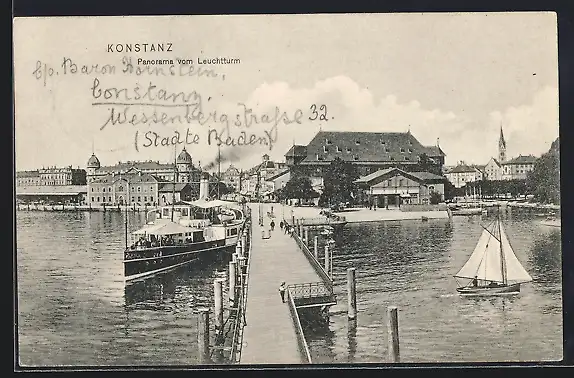 KONSTANZ
Panorama vom Leuchtturm
c/o. Baron Bornstein,
Constanz,
Wessenbergstraße 32.
(Städte Baden)